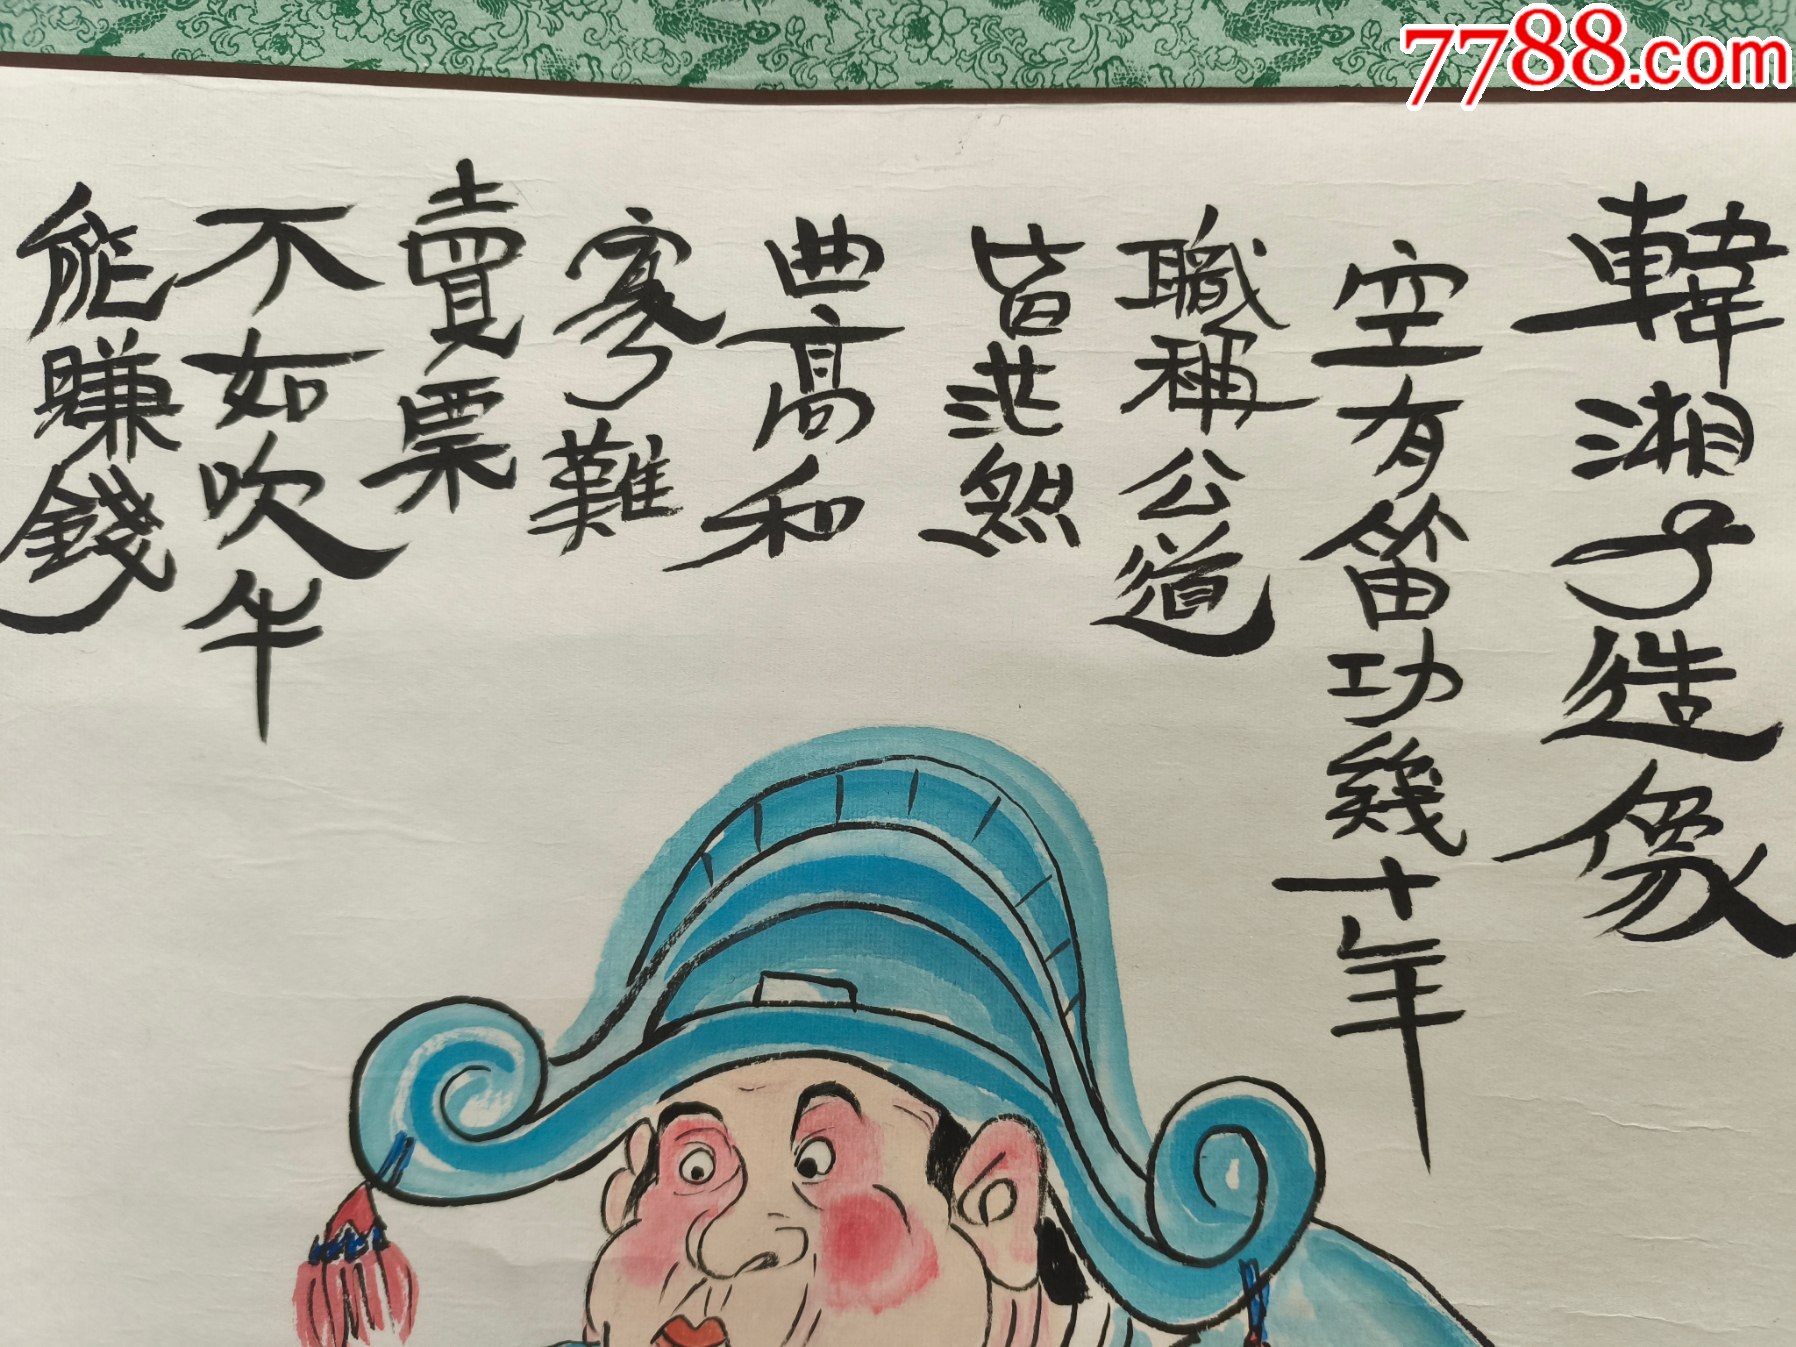 7788.com
韓湘子造像
空有笛功幾十年
職稱公道
皆茫然
曲高和
寡難
賣票
不如吹牛
能賺錢